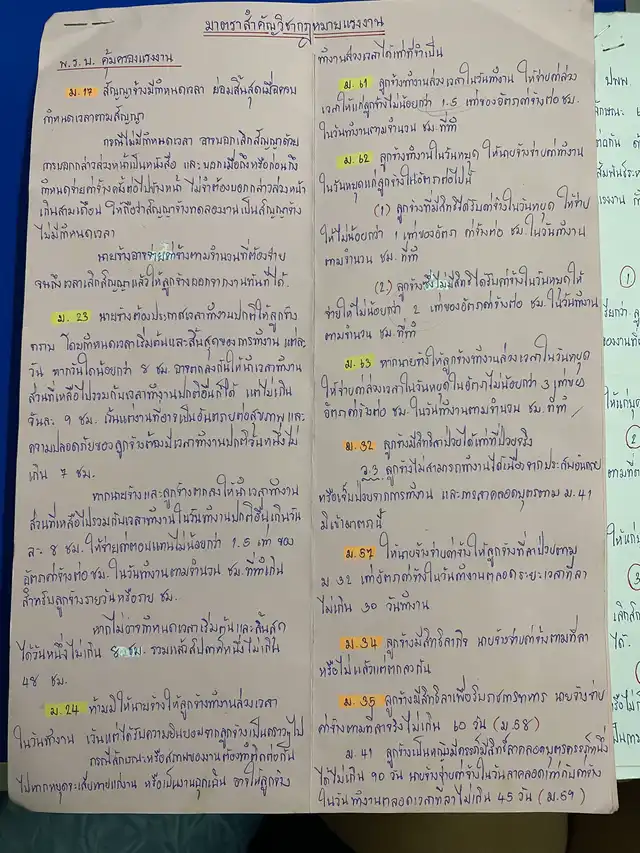 มาตราสำคัญวิชากฎหมายแรงงาน
พ.ร.บ. คุ้มครองแรงงาน
ม.17 สัญญาจ้างมีกำหนดเวลา ย่อมสิ้นสุดเมื่อครบ
กำหนดเวลาตามสัญญา
กรณีไม่มีกำหนดเวลา อาจบอกเลิกสัญญาด้วย
การบอกกล่าวล่วงหน้าเป็นหนังสือ และบอกเมื่อถึงหรือก่อนถึง
กำหนดจ่ายค่าจ้างครั้งต่อไปข้างหน้า ไม่จำต้องบอกกล่าวล่วงหน้า
เกินสามเดือน ให้ถือว่าสัญญาจ้างทดลองงานเป็นสัญญาจ้าง
ไม่มีกำหนดเวลา
นายจ้างอาจจ่ายค่าจ้างตามจำนวนที่ต้องจ่าย
จนถึงเวลาเลิกสัญญาแล้วให้ลูกจ้างออกจากงานทันทีได้.
ม. 23 นายจ้างต้องประกาศเวลาทำงานปกติให้ลูกจ้าง
ทราบ โดยกำหนดเวลาเริ่มต้นและสิ้นสุดของการทำงาน แต่ละ
วัน หากวันใดน้อยกว่า 8 ชม. อาจตกลงกันให้นำเวลาทำงาน
ส่วนที่เหลือไปรวมกับเวลาทำงานปกติอื่นก็ได้ แต่ไม่เกิน
วันละ 9 ชม. เว้นแต่งานที่อาจเป็นอันตรายต่อสุขภาพและ
ความปลอดภัยของลูกจ้างต้องมีเวลาทำงานปกติวันหนึ่งไม่
เกิน 7 ชม.
หากนายจ้างและลูกจ้างตกลงให้นำเวลาทำงาน
ส่วนที่เหลือไปรวมกับเวลาทำงานในวันทำงานปกติอื่นเกินวัน
ละ 8 ชม. ให้จ่ายค่าตอบแทนไม่น้อยกว่า 1.5 เท่า ของ
อัตราค่าจ้างต่อ ชม. ในวันทำงานตามจำนวน ชม. ที่ทำเกิน
สำหรับลูกจ้างรายวันหรือราย ชม.
หากไม่อาจกำหนดเวลาเริ่มต้นและสิ้นสุด
ได้วันหนึ่งไม่เกิน 8 ชม. รวมแล้วสัปดาห์หนึ่งไม่เกิน
48 ชม.
ม. 24 ห้ามมิให้นายจ้างให้ลูกจ้างทำงานล่วงเวลา
ในวันทำงาน เว้นแต่ได้รับความยินยอมจากลูกจ้างเป็นคราวๆไป
กรณีลักษณะหรือสภาพของงานต้องทำติดต่อกัน
ไปหากหยุดจะเสียหายแก่งาน หรือเป็นงานฉุกเฉิน อาจให้ลูกจ้าง
ทำงานล่วงเวลาได้เท่าที่จำเป็น
ม. 61 ลูกจ้างทำงานล่วงเวลาในวันทำงาน ให้จ่ายค่าล่วง
เวลาให้แก่ลูกจ้างไม่น้อยกว่า 1.5 เท่าของอัตราค่าจ้างต่อ ชม.
ในวันทำงานตามจำนวน ชม. ที่ทำ
ม. 62 ลูกจ้างทำงานในวันหยุด ให้นายจ้างจ่ายค่าทำงาน
ในวันหยุดแก่ลูกจ้างในอัตราต่อไปนี้
(1) ลูกจ้างที่มีสิทธิได้รับค่าจ้างในวันหยุด ให้จ่าย
ให้ไม่น้อยกว่า 1 เท่าของอัตรา ค่าจ้างต่อ ชม. ในวันทำงาน
ตามจำนวน ชม. ที่ทำ
(2) ลูกจ้างซึ่งไม่มีสิทธิได้รับค่าจ้างในวันหยุดให้
จ่ายให้ไม่น้อยกว่า 2 เท่าของอัตราค่าจ้างต่อ ชม. ในวันทำงาน
ตามจำนวน ชม. ที่ทำ
ม. 63 หากนายจ้างให้ลูกจ้างทำงานล่วงเวลาในวันหยุด
ให้จ่ายค่าล่วงเวลาในวันหยุดในอัตราไม่น้อยกว่า 3 เท่าของ
อัตราค่าจ้างต่อ ชม. ในวันทำงานตามจำนวน ชม. ที่ทำ
ม. 32 ลูกจ้างมีสิทธิลาป่วยได้เท่าที่ป่วยจริง
ว.3 ลูกจ้างไม่สามารถทำงานได้เนื่องจากประสบอันตราย
หรือเจ็บป่วยจากการทำงาน และการลาคลอดบุตรตาม ม.41
มิเข้ามาตรานี้
ม. 57 ให้นายจ้างจ่ายค่าจ้างให้ลูกจ้างที่ลาป่วยตาม
ม 32 เท่าอัตราค่าจ้างในวันทำงานตลอดระยะเวลาที่ลา
ไม่เกิน 30 วันทำงาน
ม. 34 ลูกจ้างมีสิทธิลากิจ นายจ้างจ่ายค่าจ้างตามที่ลา
หรือไม่แล้วแต่ตกลงกัน
ม. 35 ลูกจ้างมีสิทธิลาเพื่อรับราชการทหาร นายจ้างจ่าย
ค่าจ้างตามที่ลาจริงไม่เกิน 60 วัน (ม.58)
ม. 41 ลูกจ้างเป็นหญิงมีครรภ์มีสิทธิลาคลอดบุตรครรภ์หนึ่ง
ได้ไม่เกิน 90 วัน นายจ้างจ่ายค่าจ้างในวันลาคลอดเท่ากับค่าจ้าง
ในวันทำงานตลอดเวลาที่ลาไม่เกิน 45 วัน (ม.59)
ปพพ.
1
2
3
ได้.